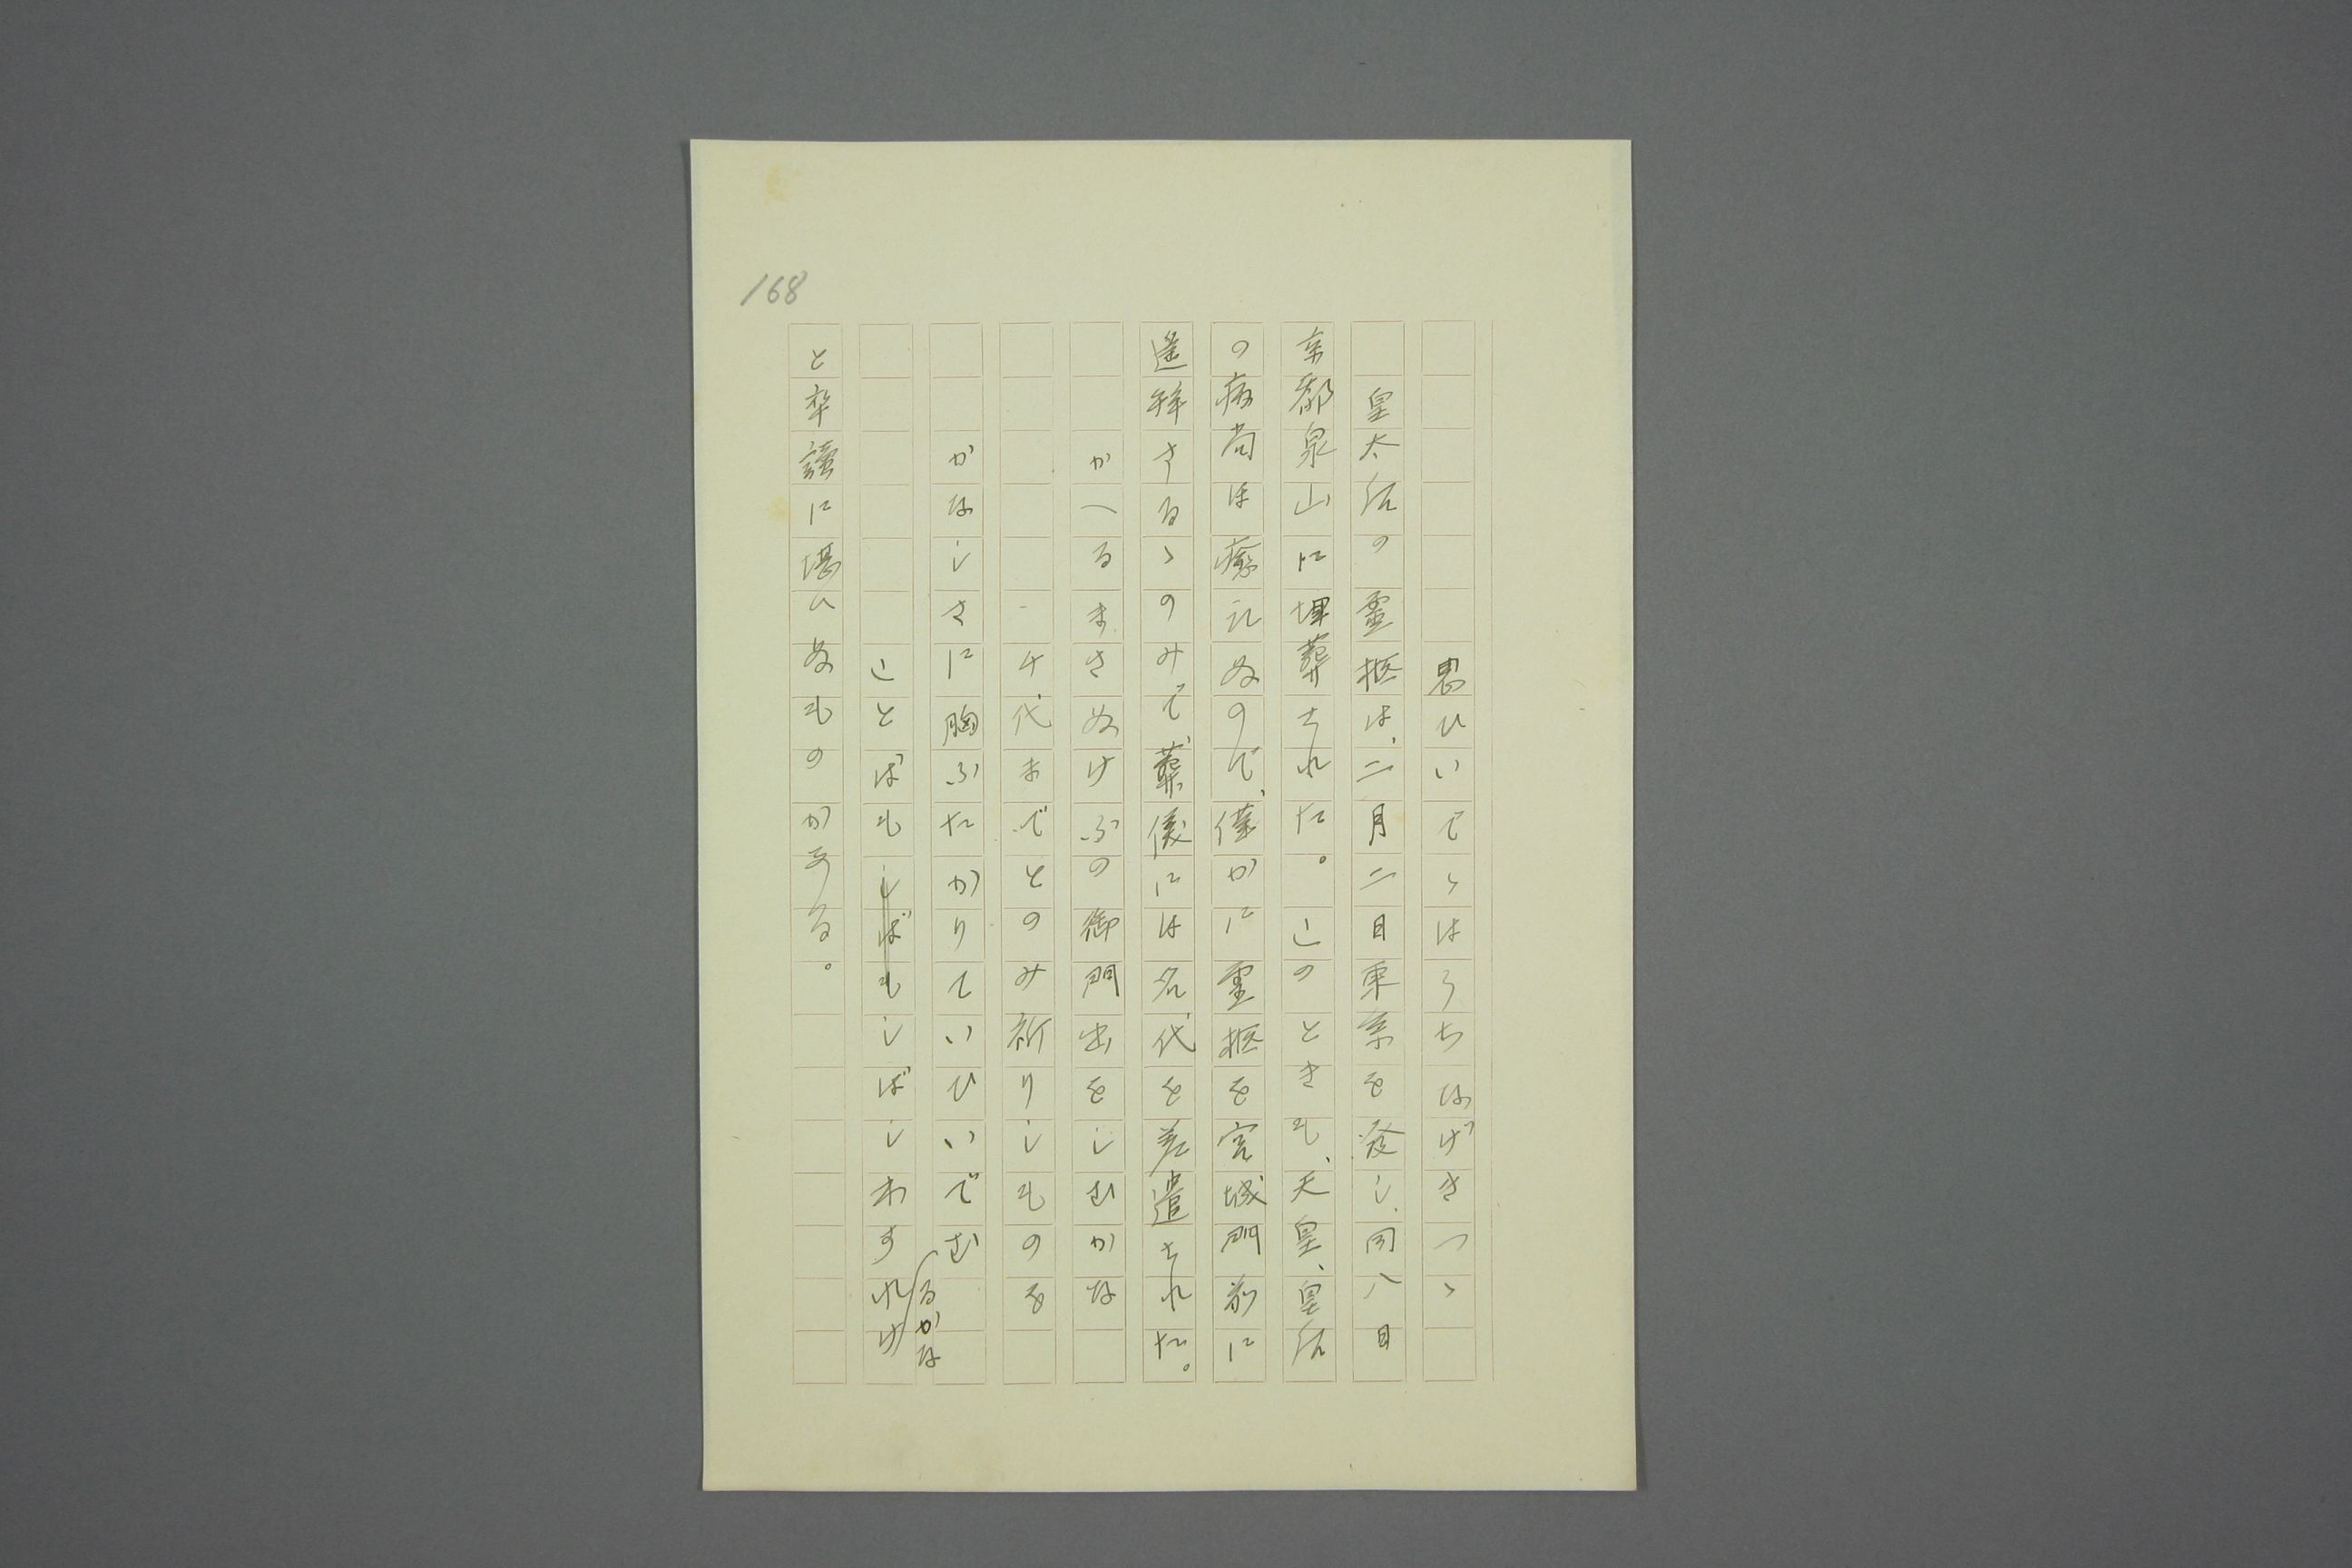 168
思ひいでゝはうちなげきつゝ
皇太后の靈柩は、二月二日東京を發し、同八日
京都泉山に埋葬された。このときも、天皇、皇后
の病尚ほ癒えぬので、僅かに靈柩を宮城門前に
遙拝さるゝのみで、葬儀には名代を差遣された。
かへるまさぬけふの御門出をしむかな
千代までとのみ祈りしものを
かなしさに胸ふたかりていひいでむ
ことばもしばもしばしわすれけるかな
と卒讀に堪へぬものがある。